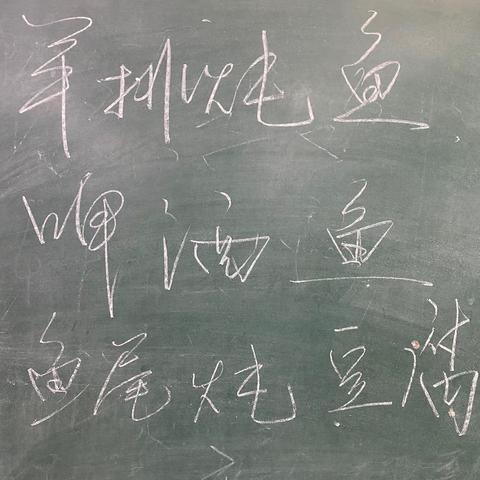 羊排炖鱼
啤酒鱼
鱼尾炖豆腐